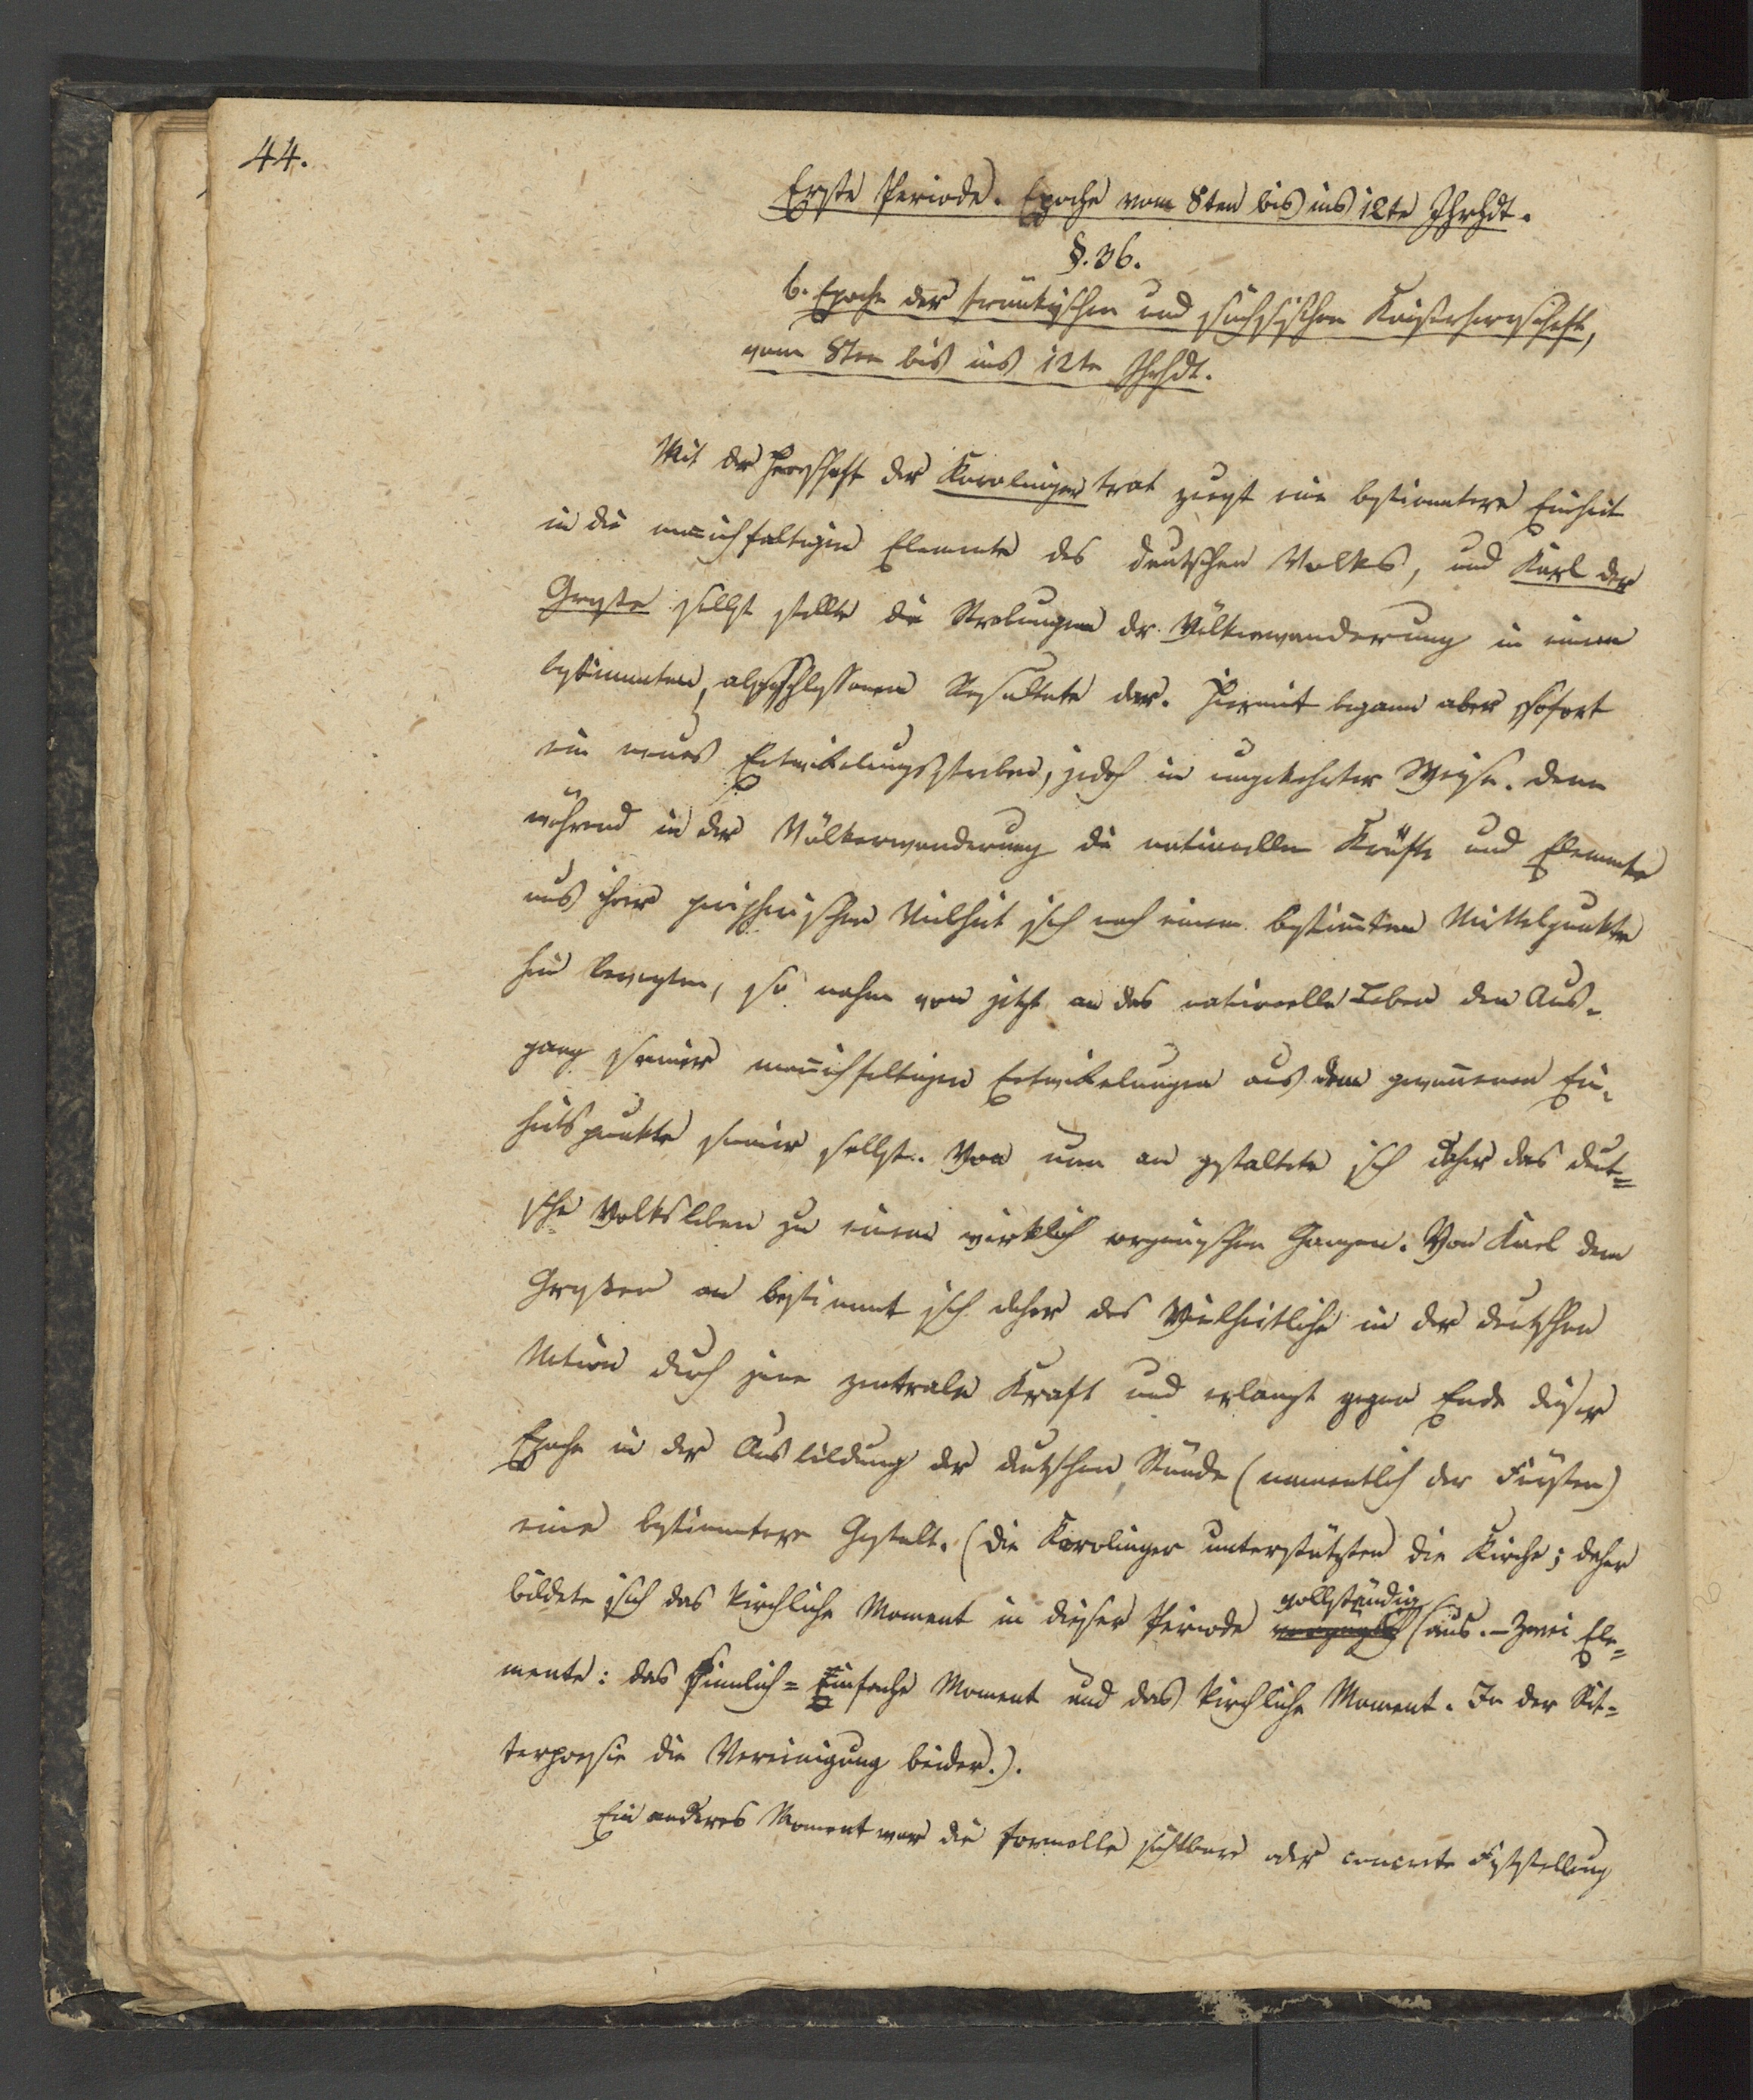 44.
Erste Periode. Epoche vom 8ten bis ins 12te Jhrhdt.
§. 36.
b. Epoche der fränkischen und sächsischen Kaiserherrschaft,
vom 8ten bis ins 12te Jhrhdt.
Mit der Herrschaft der Karolinger trat zuerst eine bestimmtere Einheit
in die man̅ichfaltigen Elemente des deutschen Volks, und Karl der
Große selbst stellte die Strebungen der Völkerwanderung in einem
bestimmten, abgeschlossenen Resultate dar. Hiermit begann aber sofort
ein neues Entwickelungsstreben, jedoch in umgekehrter Weise. Denn
während in der Völkerwanderung die nationellen Kräfte und Elemente
aus ihrer peripherischen Vielheit sich nach einem bestim̅ten Mittelpunkte
hin bewegten, so nahm von jetzt an das nationelle Leben den Aus-
gang seiner man̅ichfaltigen Entwickelungen aus dem gewon̅enen Ein-
heitspunkte seiner selbst. Von nun an gestaltete sich daher das deut=
sche Volksleben zu einem wirklich organischen Ganzen. Von Karl dem
Großen an bestimmt sich daher das Vielheitliche in der deutschen
Nation durch jene zentrale Kraft und erlangt gegen Ende dieser
Epoche in der Ausbildung der deutschen Stände (namentlich der Fürsten)
eine bestimmtere Gestalt. (Die Karolinger unterstützten die Kirche; daher
bildete sich das kirchliche Moment in dieser Periode vollständig aus. – Zwei Ele=
mente: das sinnlich=Einfache Moment und das kirchliche Moment. In der Rit=
terpoesie die Vereinigung beider.).
Ein anderes Moment war die formelle sichtbare oder concrete Feststellung